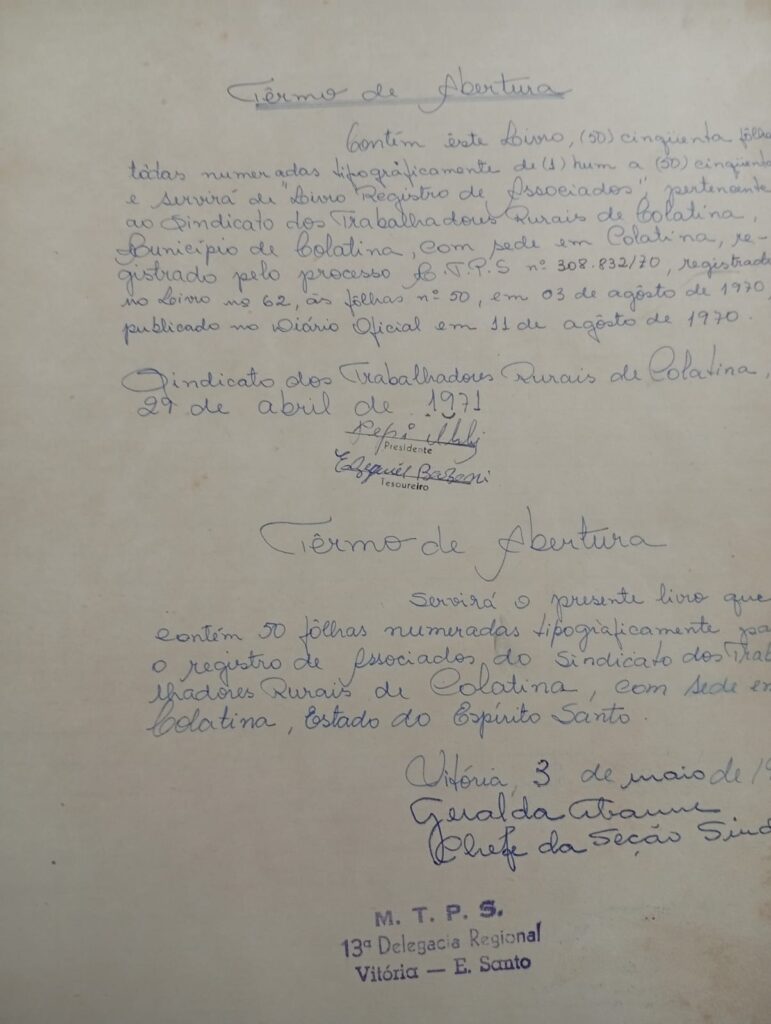 Têrmo de Abertura
Contém êste Livro, (50) cinqüenta fôlhas
tôdas numeradas tipogràficamente de (1) hum a (50) cinqüenta
e servirá de "Livro Registro de Associados", pertencente
ao Sindicato dos Trabalhadores Rurais de Colatina,
Município de Colatina, com sede em Colatina, re-
gistrado pelo processo M.T.P.S nº 308.832/70, registrado
no Livro nº 62, às fôlhas nº 50, em 03 de agôsto de 1970,
publicado no Diário Oficial em 11 de agôsto de 1970.
Sindicato dos Trabalhadores Rurais de Colatina,
29 de abril de 1971
Presidente
Ezequiel
Tesoureiro
Têrmo de Abertura
Servirá o presente livro que
contém 50 fôlhas numeradas tipogràficamente pa
o registro de Associados do Sindicato dos Trab
lhadores Rurais de Colatina, com sede em
Colatina, Estado do Espírito Santo.
Vitória, 3 de maio de 19
Geralda
Chefe da Seção Sind
M. T. P. S.
13ª Delegacia Regional
Vitória — E. Santo